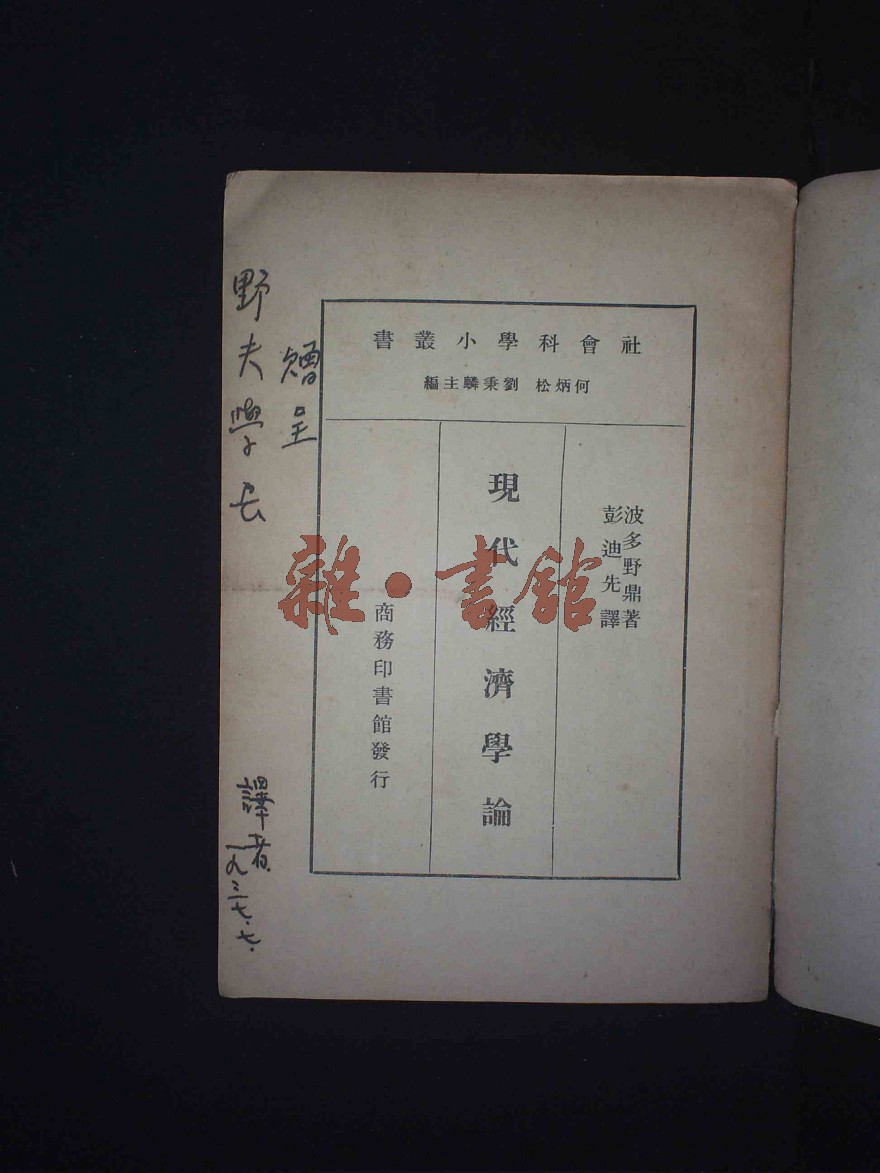 社會科學小叢書
何炳松 劉秉麟主編
波多野鼎著
彭迪先譯
現代經濟學論
商務印書館發行
贈呈
野夫學長
譯者
一九三七·七·
雜·書館